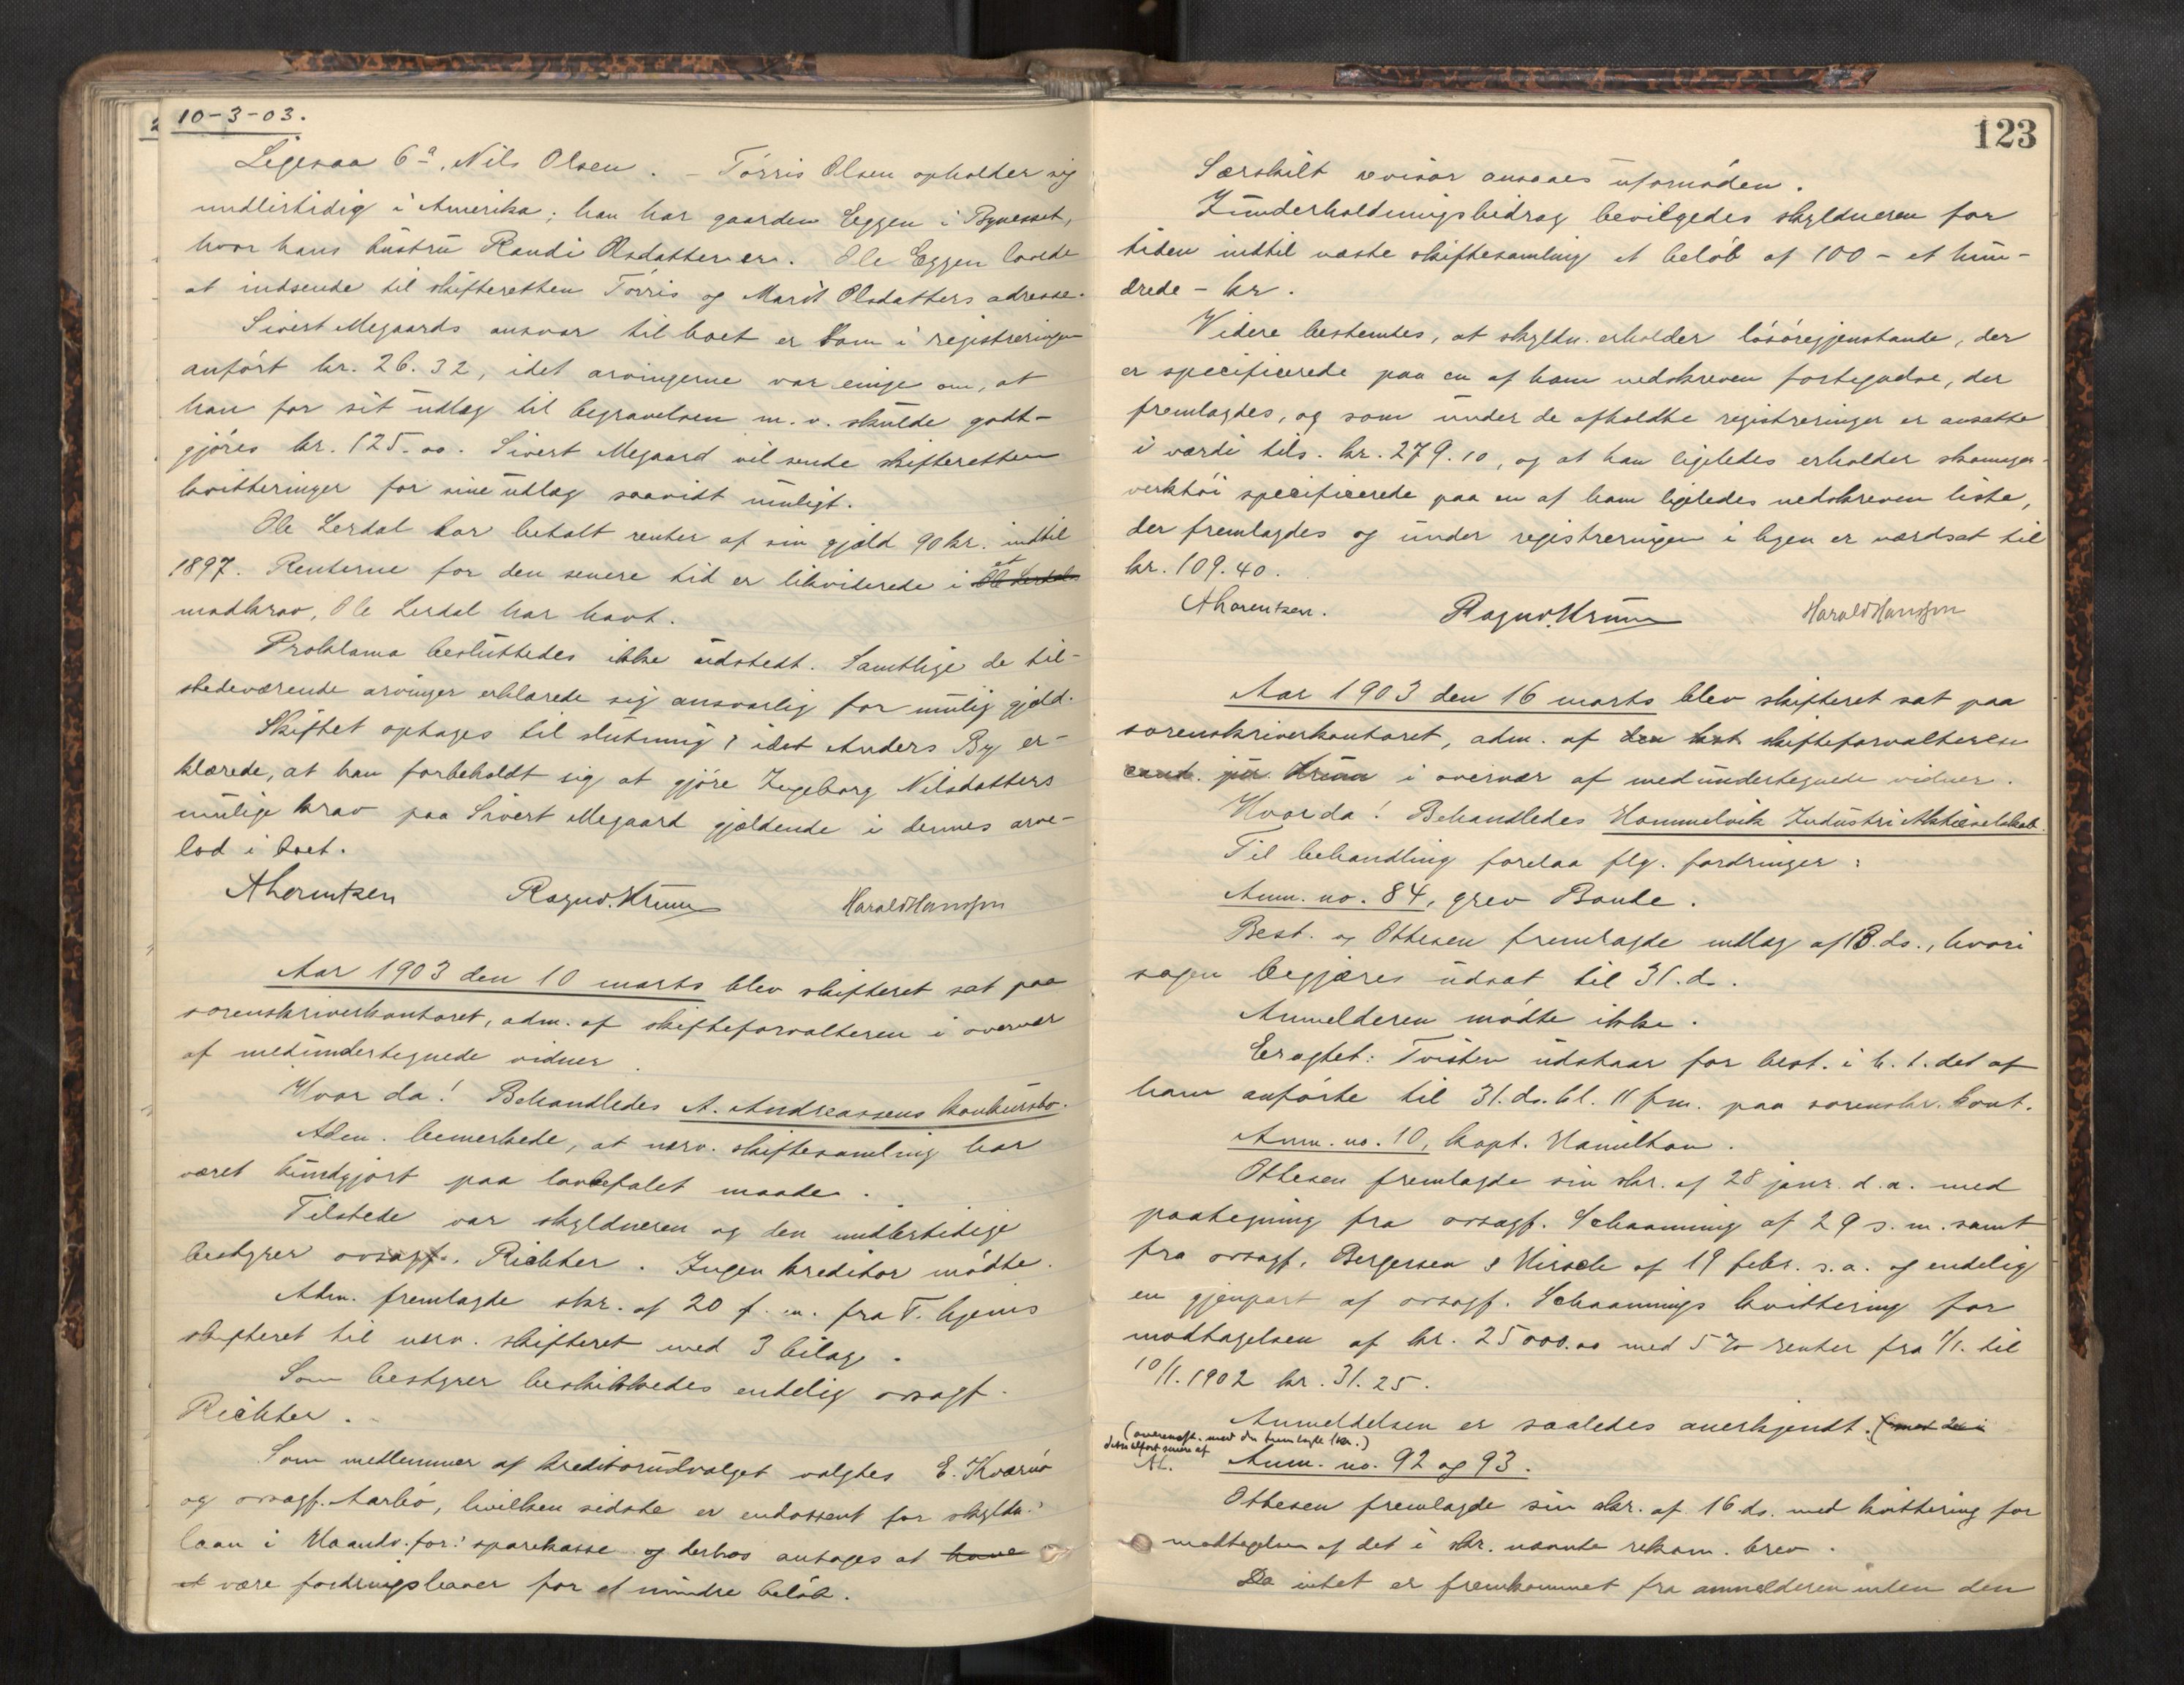 10-3-03.
Ligesaa 6a, Nils Olsen. - Törris Olsen opholder sig
midlertidig i Amerika; han har gaarden Eggen i Bynesset,
hvor hans hustru Randi Olsdatter er. Ole Eggen lovede
at indsende til skifteretten Törris og Marit Olsdatters adresse.
Sivert Megaards ansvar til boet er som i registreringen
anført kr. 26.32, idet arvingerne var enige om, at
han for sit udlæg til begravelsen m.v. skulde godt-
gjöres kr. 125.00. Sivert Megaard vil sende skifteretten
kvitteringer for sine udlæg saavidt muligt.
Ole Lerdal har betalt renter af sin gjæld 90 kr. indtil
1897. Renterne for den senere tid er likviderede i et Ole Lerdals
modkrav, Ole Lerdal har havt.
Proklama besluttedes ikke udstedt. Samtlige de til-
stedeværende arvinger erklærede sig ansvarlig for mulig gjeld.
Skiftet optages til slutning, idet Anders By er-
klærede, at han forbeholdt sig at gjöre Ingeborg Nilsdatters
mulige krav paa Sivert Megaard gjældende i dennes arve-
lod i boet.
A Lorentzen Ragnv. Krum Harald Hansson
Aar 1903 den 10 marts blev skifteret sat paa
sorenskriverkontoret, adm. af skifteforvalteren i overvær
af medundertegnede vidner.
Hvor da! Behandledes A. Andreassens konkursbo.
Adm. bemerkede, at nærv. skiftesamling har
været kundgjort paa lovbefalet maade.
Tilstede var skyldneren og den midlertidige
bestyrer ovsagf. Richter. Ingen kreditor mödte.
Adm. fremlagde skr. af 20 f. m. fra T.hjems
skifteret til nærv. skifteret med 3 bilag.
Som bestyrer beskikkedes endelig ovsagf.
Richter.
Som medlemmer af kreditorudvalget valgtes E. Kværnö
og ovsagf. Aarbö, hvilken sidste er endossent for skyldn.s
laan i Haandv.for.s sparekasse og derhos antages at have
at være fordringshaver for et mindre belöb.
123
Særskilt revisor ansaaes ufornöden.
I underholdningsbidrag bevilgedes skyldneren for
tiden indtil næste skiftesamling et belöb af 100 - et hun-
drede - kr.
Videre bestemtes, at skyldn. erholder lösöregjenstande, der
er specificerede paa en af ham nedskreven fortegnelse, der
fremlagdes, og som under de afholdte registreringer er ansatte
i værdi tils. kr. 279.10, og at han ligeledes erholder skomager-
verktöi specificerede paa en af ham ligeledes nedskreven liste,
der fremlagdes og under registreringen i byen er værdsat til
kr. 109.40.
A Lorentzen. Ragnv. Krum Harald Hansson
Aar 1903 den 16 marts blev skifteret sat paa
sorenskriverkontoret, adm. af den kst skifteforvalteren
cand. jur. Krum i overvær af medundertegnede vidner.
Hvor da! Behandledes Hommelvik Industri Aktieselskab.
Til behandling forelaa flg. fordringer:
Anm. no. 84, grev Bonde.
Best. og Ottesen fremlagde indlæg af 13. ds., hvori
sagen begjæres udsat til 31. ds.
Anmelderen mödte ikke.
Eragtet: Tvisten udstaar for best. i h. t. det af
ham anförte til 31. ds. kl. 11 fm. paa sorenskr. kont.
Anm. no. 10, kapt. Hamilton.
Ottesen fremlagde sin skr. af 28 janr. d. a. med
paategning fra ovsagf. Schaanning af 29 s. m. samt
fra ovsagf. Bergersen & Hirsch af 19 febr. s. a. og endelig
en gjenpart af ovsagf. Schaannings kvittering for
modtagelsen af kr. 25000.00 med 5 % renter fra 1/1. til
10/1. 1902 kr. 31.25.
Anmeldelsen er saaledes anerkjendt. (med den i
(overensst. med den fremlagte skr.)
dette tilført senere af
AL.
Anm. no. 92 og 93.
Ottesen fremlagde sin skr. af 16. ds. med kvittering for
modtagelsen af det i skr. nævnte rekom. brev.
Da intet er fremkommet fra anmelderen inden den